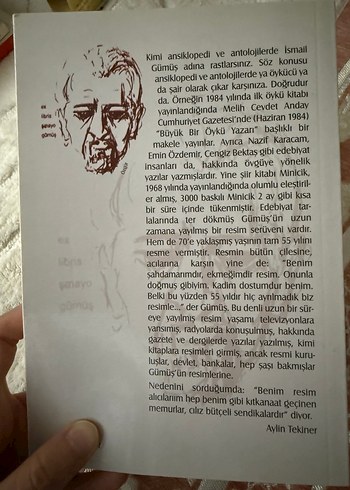 Kimi ansiklopedi ve antolojilerde İsmail
Gümüş adına rastlarsınız. Söz konusu
ansiklopedi ve antolojilerde ya öykücü ya
da şair olarak çıkar karşınıza. Doğrudur
da. Örneğin 1984 yılında ilk öykü kitabı
yayınlandığında Melih Cevdet Anday
Cumhuriyet Gazetesi'nde (Haziran 1984)
"Büyük Bir Öykü Yazarı" başlıklı bir
makele yayınlar. Ayrıca Nazif Karacam,
Emin Özdemir, Cengiz Bektaş gibi edebiyat
insanları da, hakkında övgüye yönelik
yazılar yazmışlardır. Yine şiir kitabı Minicik,
1968 yılında yayınlandığında olumlu eleştiril-
er almış, 3000 baskılı Minicik 2 ay gibi kısa
bir süre içinde tükenmiştir. Edebiyat tar-
lalarında ter dökmüş Gümüş'ün uzun
zamana yayılmış bir resim serüveni vardır.
Hem de 70'e yaklaşmış yaşının tam 55 yılını
resme vermiştir. Resmin bütün çilesine,
acılarına karşın yine de: "Benim
şahdamarımdır, ekmeğimdir resim. Onunla
doğmuş gibiyim. Kadim dostumdur benim.
Belki bu yüzden 55 yıldır hiç ayrılmadık biz
resimle..." der Gümüş. Bu denli uzun bir sür-
eye yayılmış resim yaşamı televizyonlara
yansımış, radyolarda konuşulmuş, hakkında
gazete ve dergilerde yazılar yazılmış, kimi
kitaplara resimleri girmiş, ancak resmi kuru-
luşlar, devlet, bankalar, hep şaşı bakmışlar
Gümüş'ün resimlerine.
Nedenini sorduğumda: "Benim resim
alıcılarım hep benim gibi kıtkanaat geçinen
memurlar, cılız bütçeli sendikalardır" diyor.
Aylin Tekiner
ex
libris
şanayo
gümüş